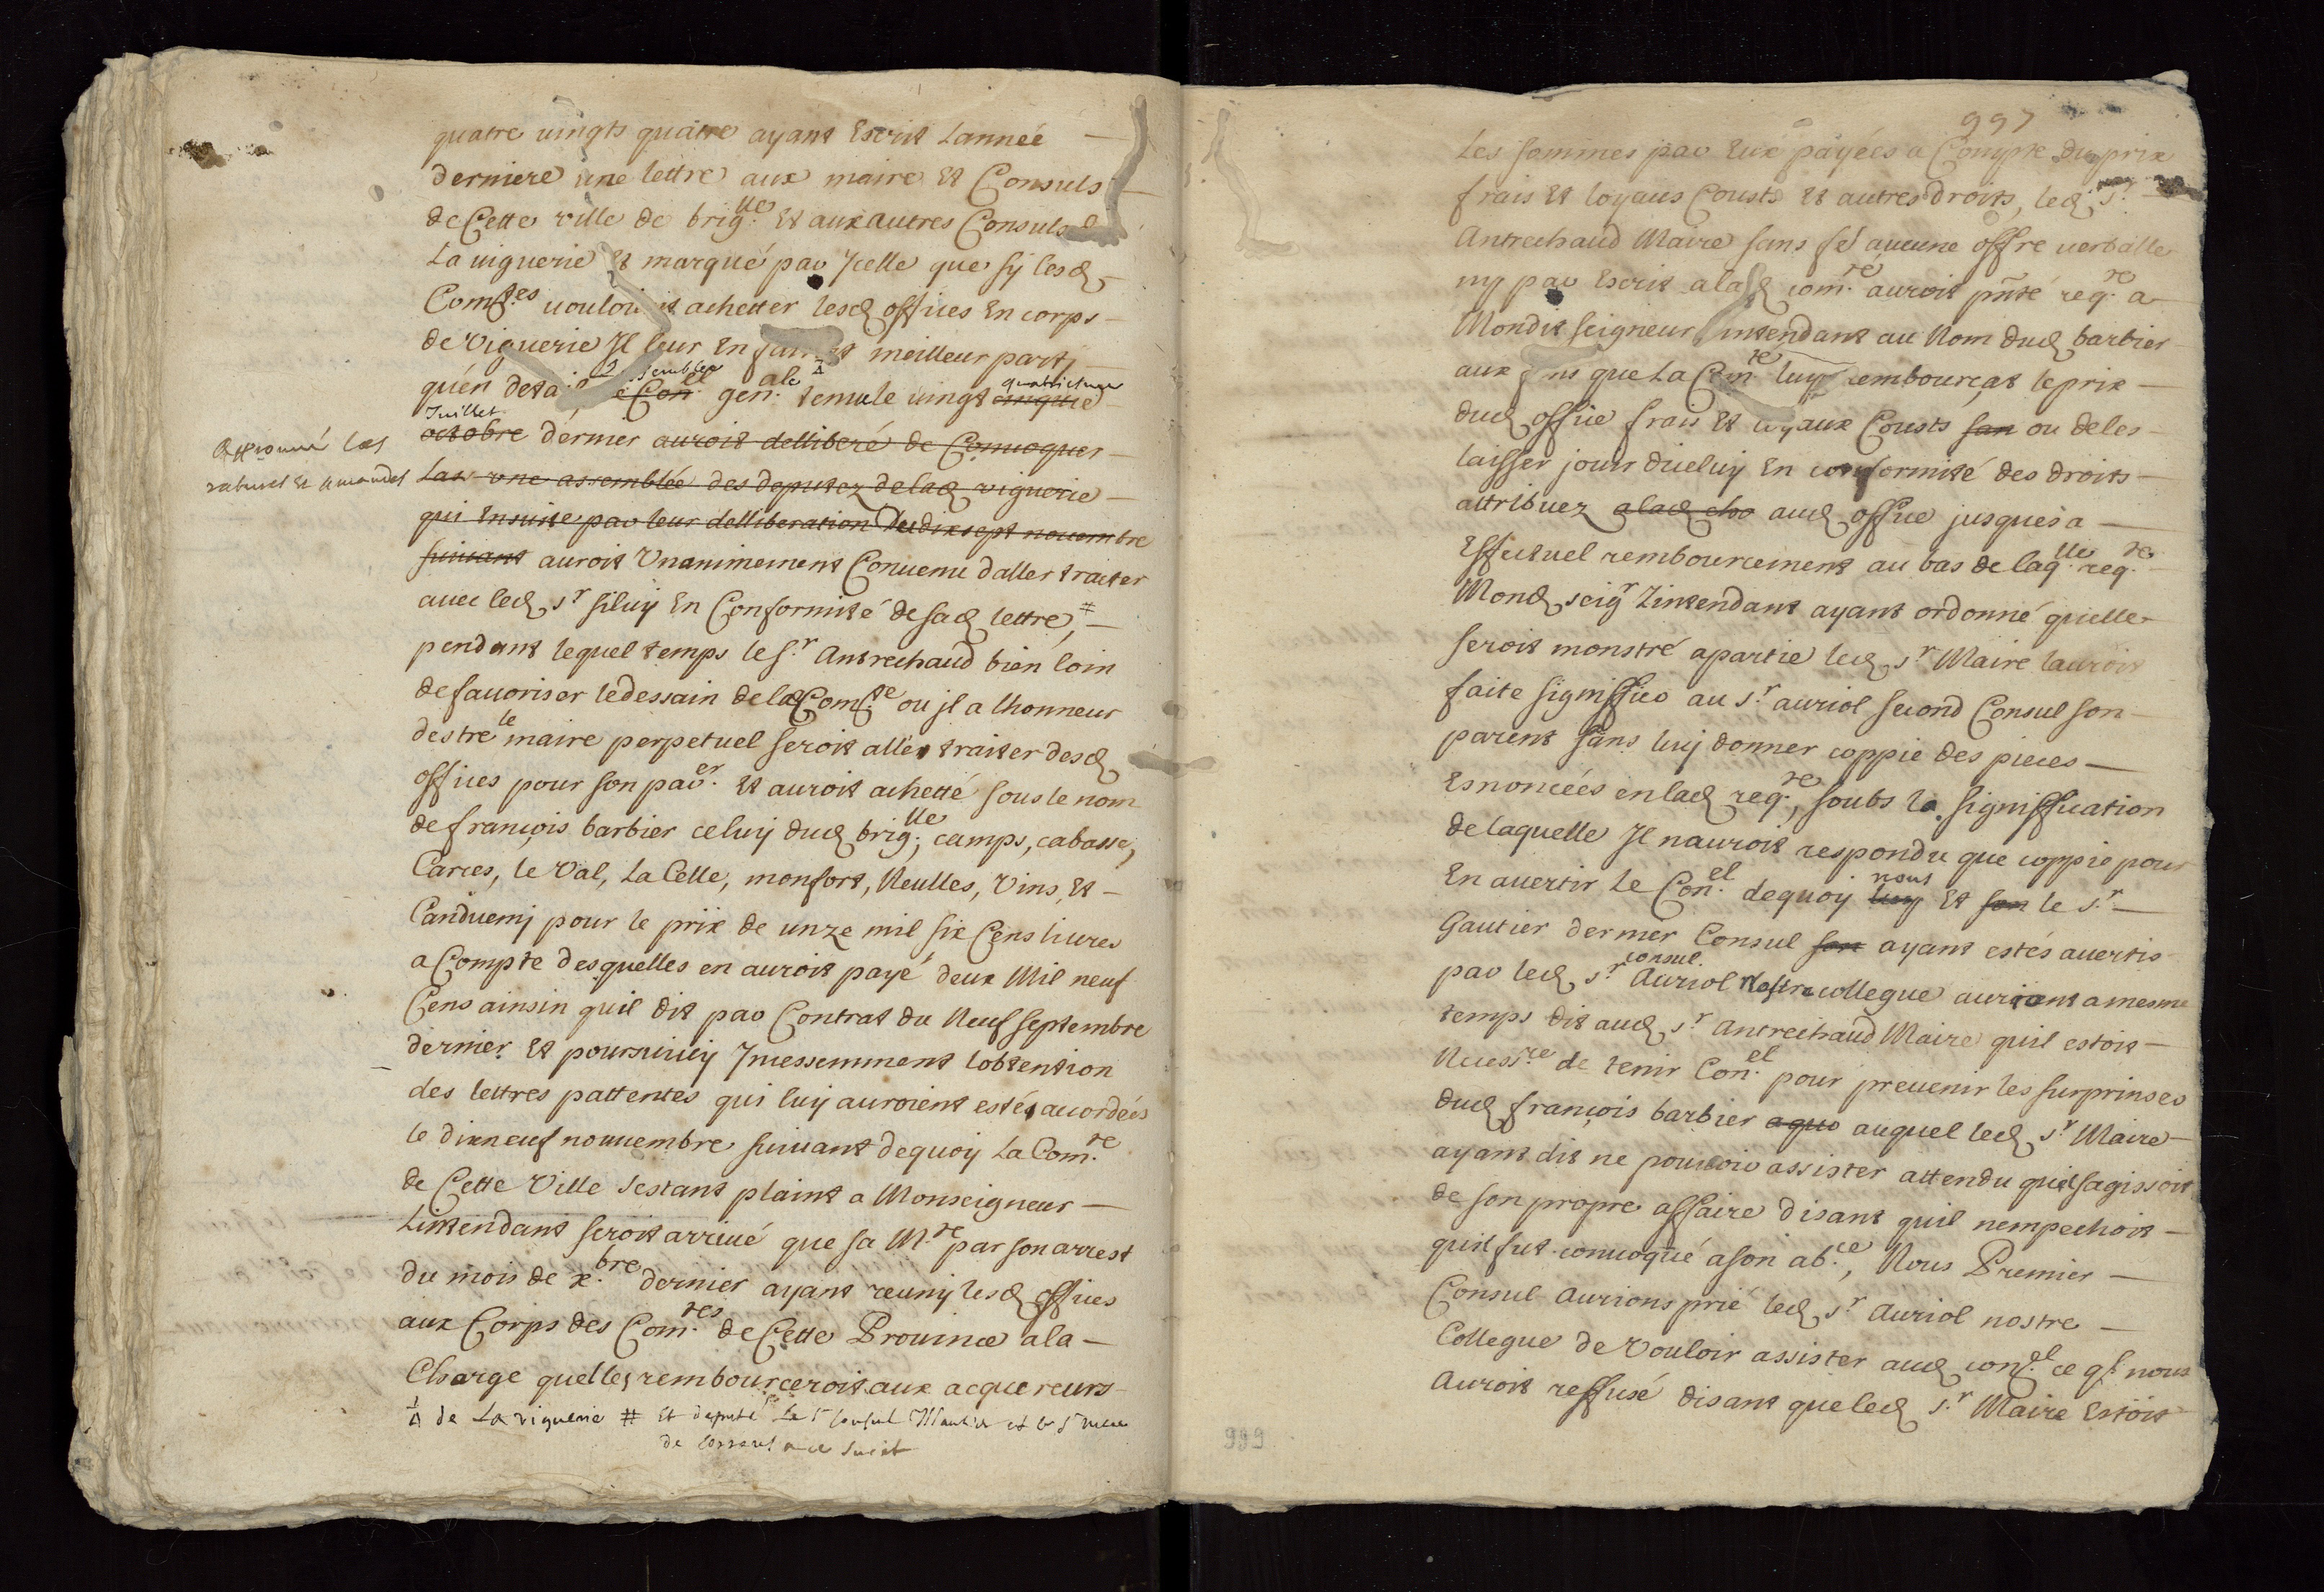 quatre uingts quatre ayant Escrit Lannée
derniere une lettre aux maire Et Consuls
de Cette ville de brig.lle Et aux autres Consuls
La uiguerie Et marqué par Jcelle que sy lesd
Com.tes uouloint achetter lesd offices En corps
de Viguerie Jl leur En meilleur party
quén detail, assemblée Con.el gen.ale tenue le uingt quatriesme cinquie
Juillet
octobre dernier auroit delliberé de Conuoquer
Approuué les
ratures et amandes
Las une assemblée des deputez de lad viguerie
qui Ensuite par leur delliberation du dixsept nouembre
suiuant auroit Unanimement Conuenu daller traiter
auec led s.r siluy En Conformité de sad lettre, #
pendant lequel temps le s.r Antrechaud bien loin
de fauoriser le dessain de lad Com.te ou jl a lhonneur
destre le maire perpetuel seroit allé traiter desd
offices pour son par.er Et auroit achetté sous le nom
de françois barbier celuy dud brig.lle, camps, cabasse,
Carces, le Val, La Celle, monfort, Neulles, Vins, Et
Canduemj pour le prix de unze mil six Cens liures
a Compte desquelles en auroit payé deux Mil neuf
Cens ainsin quil dit par Contrat du Neuf septembre
dernier Et poursuiuy Jncessemment lobtention
des lettres pattentes qui luy auroient estés accordées
le dixneuf nouuembre suiuant dequoy La Com.te
de Cette Ville sestant plaint a Monseigneur
Lintendant seroit arriué que sa M.te par son arrest
du mois de x.bre dernier ayant reuny lesd offices
aux Corps des Com.tes de Cette Prouince a la
Charge quelles rembourceroit aux acquereurs
de La viguerie # Et deputé Le s.r Consul et le s.r
de a ce suiet
997
Les sommes par Eux payées a Compte du prix
frais Et loyaus Cousts Et autres droits, led s.r
Antrechaud Maire sans fe aucune offre uerballe
ny par Escrit a lad com.te auroit pnté req.te a
Mondit seigneur Lintendant au Nom dud barbier
aux fins que La Com.te luy rembourçat le prix
dud office frais Et loyaux Cousts san ou de les
laisser jouir diceluy En conformité des droits
attribuez alad cho aud office jusques a
Effectuel rembourcement au bas de laq.lle req.te
Mond seig.r Lintendant ayant ordonné quelle
seroit monstré a partie led s.r Maire lauroit
faite signiffier au s.r auriol second Consul son
parent sans luy donner coppie des pieces
Esnoncées en lad req.te, soubs la signiffication
de laquelle Jl nauroit respondu que coppie pour
En auertir le Con.el dequoy nous luy Et son le s.r
Gautier dernier Consul son ayant estés auertis
par led s.r consul Auriol Nostre collegue aurions a mesme
temps dit aud s.r Antrechaud Maire quil estoit
Necess.re de tenir Con.el pour preuenir les surprinses
dud françois barbier aquo auquel led s.r Maire
ayant dit ne pouuoir assister attendu quil sagissoit
de son propre affaire disant quil nempechoit
quil fut conuoqué a son ab.ce, Nous Premier
Consul Aurions prié led s.r Auriol nostre
Collegue de Vouloir assister aud con.el ce q.l nous
Auroit reffusé disant que led s.r Maire Estoit
999